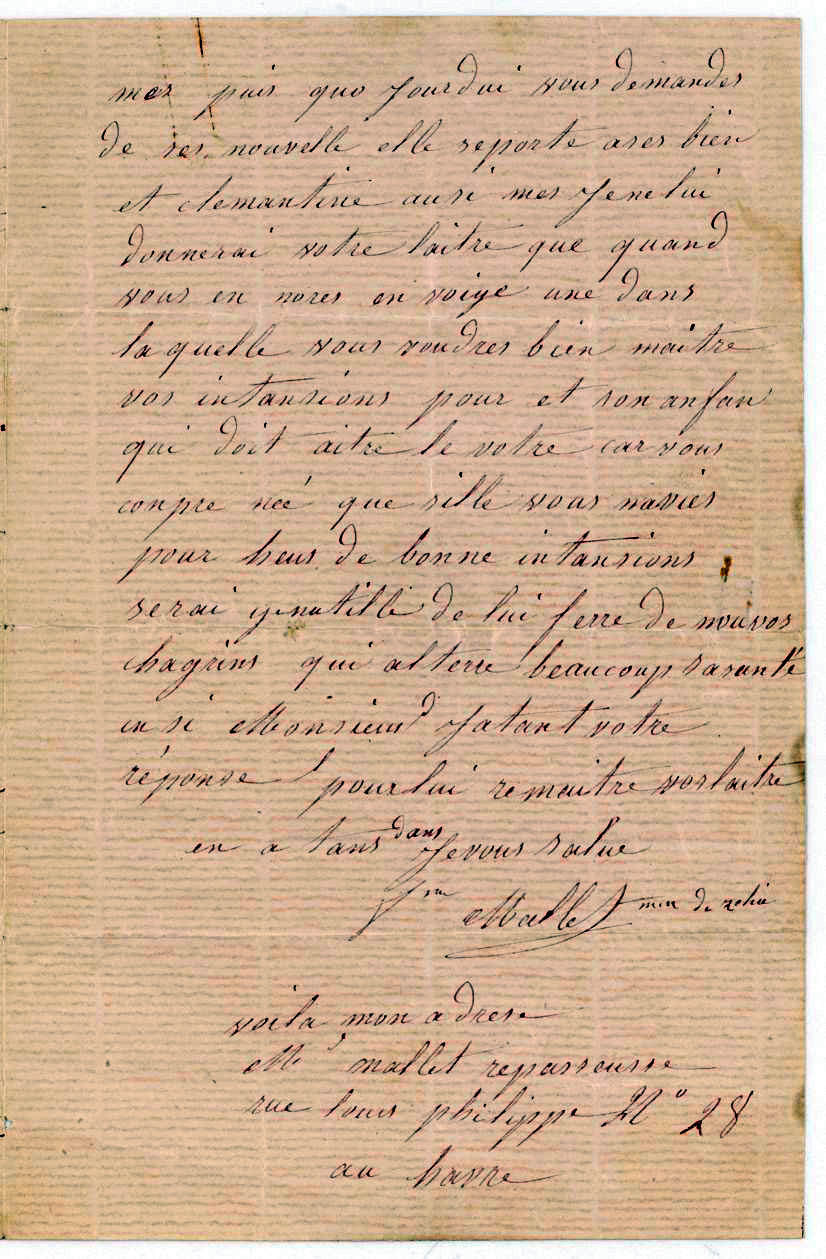 mes puis quo jourdui vous demandes
de ses nouvelle elle seporte ases bien
et clemantine ausi mes Jene lui
donnerai votre laitre que quand
vous en nores en voiye une dans
la quelle vous voudres bien maitre
vos intansions pour et son anfan
qui doit aitre le votre car vous
conpre néé que sille vous navies
pour heus de bonne intansions
serai ynutille de lui ferre de nouvos
chagrins qui alterre beaucoup sasanté
in si Monsieur Jatant votre
réponse pourlui remaitre vos laitre
en a tans dans Jevous salue
Mallet de
voila mon adrese
Me mallet repasseusse
rue louis philippe No 28
au havre